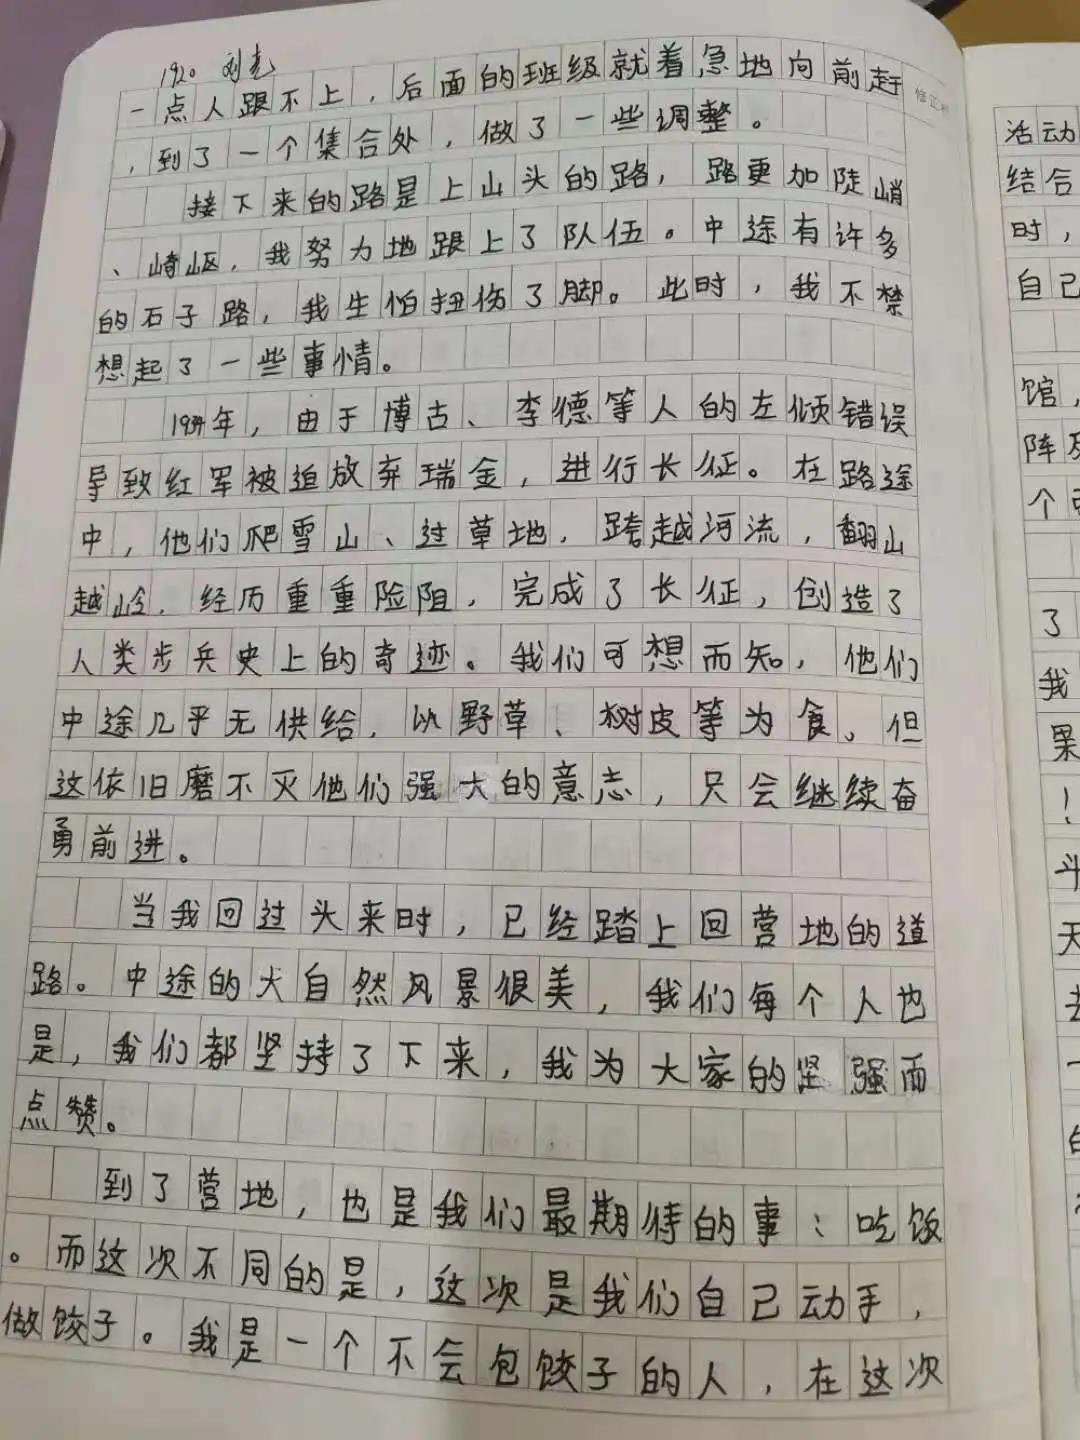 1920 刘克
一点人跟不上，后面的班级就着急地向前赶
，到了一个集合处，做了一些调整。
接下来的路是上山头的路，路更加陡峭
、崎岖，我努力地跟上了队伍。中途有许多
的石子路，我生怕扭伤了脚。此时，我不禁
想起了一些事情。
1934年，由于博古、李德等人的左倾错误
导致红军被迫放弃瑞金，进行长征。在路途
中，他们爬雪山、过草地，跨越河流，翻山
越岭，经历重重险阻，完成了长征，创造了
人类步兵史上的奇迹。我们可想而知，他们
中途几乎无供给，以野草、树皮等为食。但
这依旧磨不灭他们强大的意志，只会继续奋
勇前进。
当我回过头来时，已经踏上回营地的道
路。中途的大自然风景很美，我们每个人也
是，我们都坚持了下来，我为大家的坚强而
点赞。
到了营地，也是我们最期待的事：吃饭
。而这次不同的是，这次是我们自己动手，
做饺子。我是一个不会包饺子的人，在这次
活动
结合
时，
自己
馆，
阵
个
了
我
果
！
斗
天